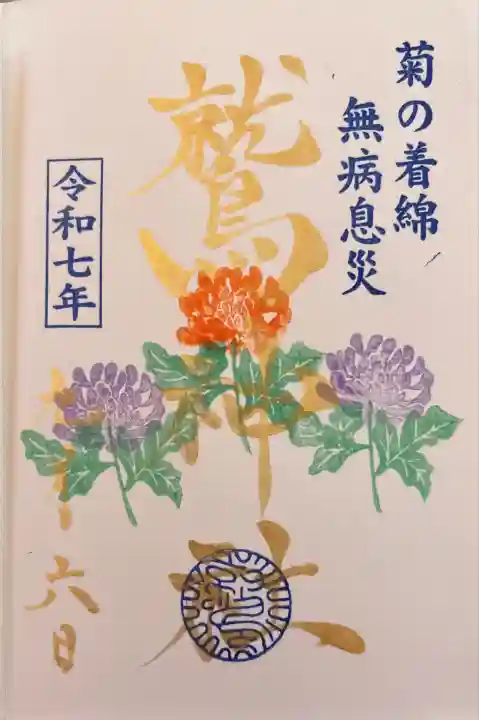 菊の着綿
無病息災
鷲神社
令和七年
十六日